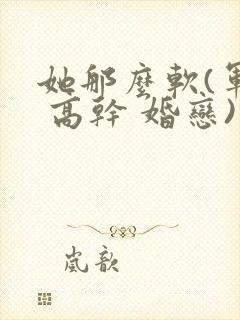 她那麼軟(軍
高幹 婚戀)
嵐歆